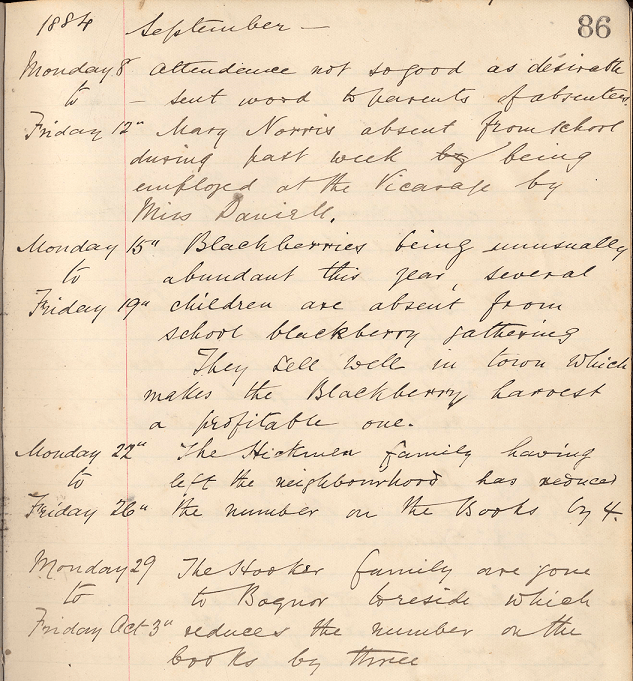 1884 September — 86
Monday 8 Attendence not so good as desirable
to — sent word to parents of absentees.
Friday 12" Mary Norris absent from school
during past week by being
employed at the Vicarage by
Miss Daniell.
Monday 15" Blackberries being unusually
to abundant this year, several
Friday 19" children are absent from
school blackberry gathering
They sell well in town which
makes the Blackberry harvest
a profitable one.
Monday 22" The Hickmen family having
to left the neighbourhood has reduced
Friday 26" the number on the Books by 4.
Monday 29 The Hooker family are gone
to to Bognor to reside which
Friday Oct 3" reduces the number on the
books by three